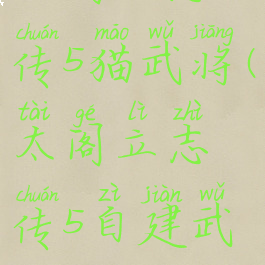 chuán māo wǔ jiāng
传5猫武将(
tài gé lì zhì
太阁立志
chuán zì jiàn wǔ
传5自建武